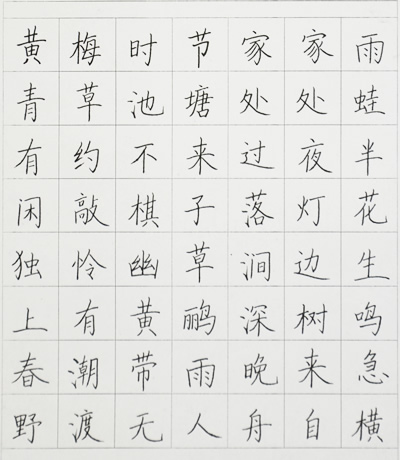 黄梅时节家家雨
青草池塘处处蛙
有约不来过夜半
闲敲棋子落灯花
独怜幽草涧边生
上有黄鹂深树鸣
春潮带雨晚来急
野渡无人舟自横